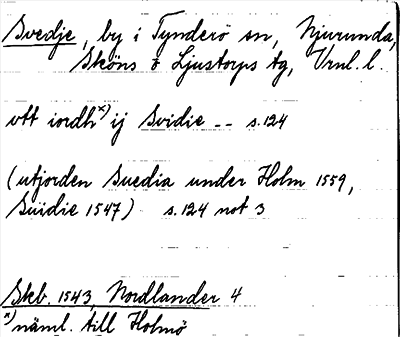 Svedje, by i Tynderö sn, Njurunda,
Sköns o Ljustorps tg, Vrnl. l.
ott iordh x) ij Svidie -- s. 124
(utjorden Suedia under Holm 1559,
Suidie 1547) s. 124 not 3
Skb. 1543, Nordlander 4
x) näml. till Holmö